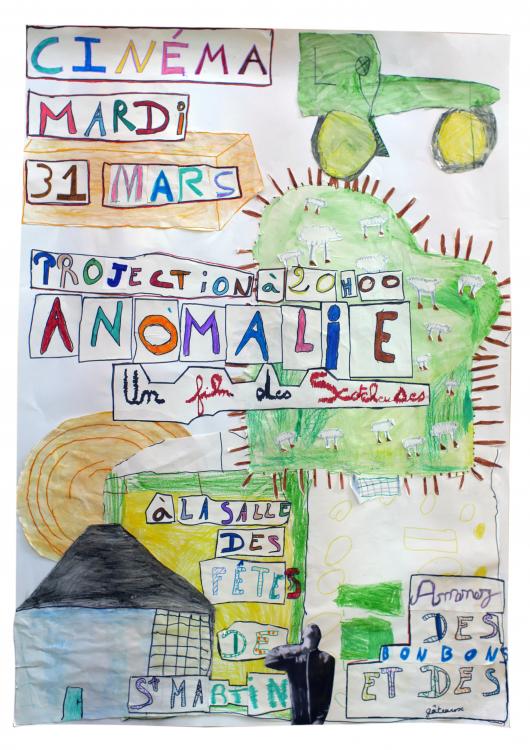 CINÉMA
MARDi
31 MARS
PROJECTiON à 20H00
ANOMALiE
Un film des Scotcheuses
à LA SALLE
DES
FÊTES
DE
St MARTIN
Amenez
DES
BONBONS
ET DES
gâteaux